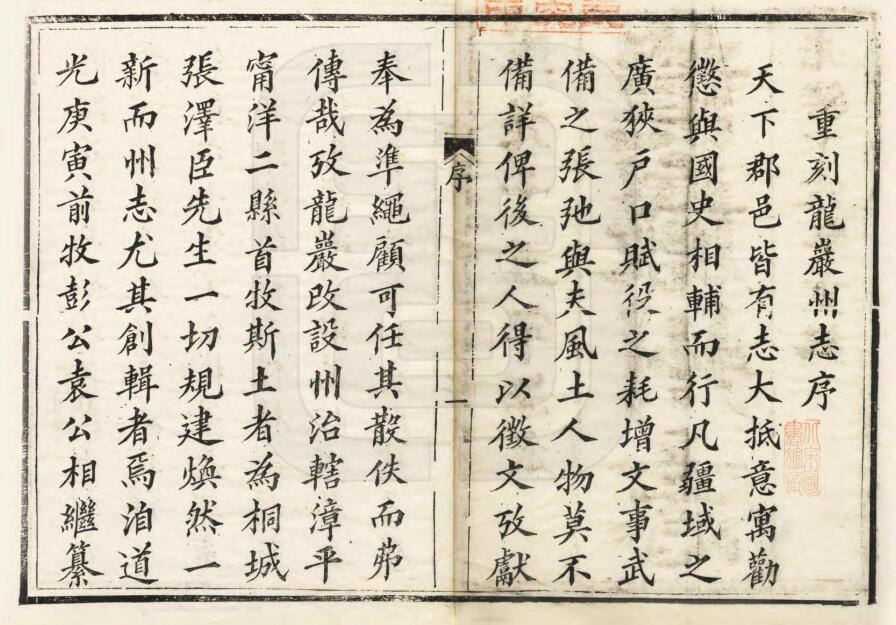 重刻龍巖州志序
天下郡邑皆有志大抵意寓勸
懲與國史相輔而行凡疆域之
廣狹戶口賦役之耗增文事武
備之張弛與夫風土人物莫不
備詳俾後之人得以徵文攷獻
序
一
奉為準繩顧可任其散佚而弗
傳哉攷龍巖改設州治轄漳平
甯洋二縣首牧斯土者為桐城
張澤臣先生一切規建煥然一
新而州志尤其創輯者焉洎道
光庚寅前牧彭公袁公相繼纂